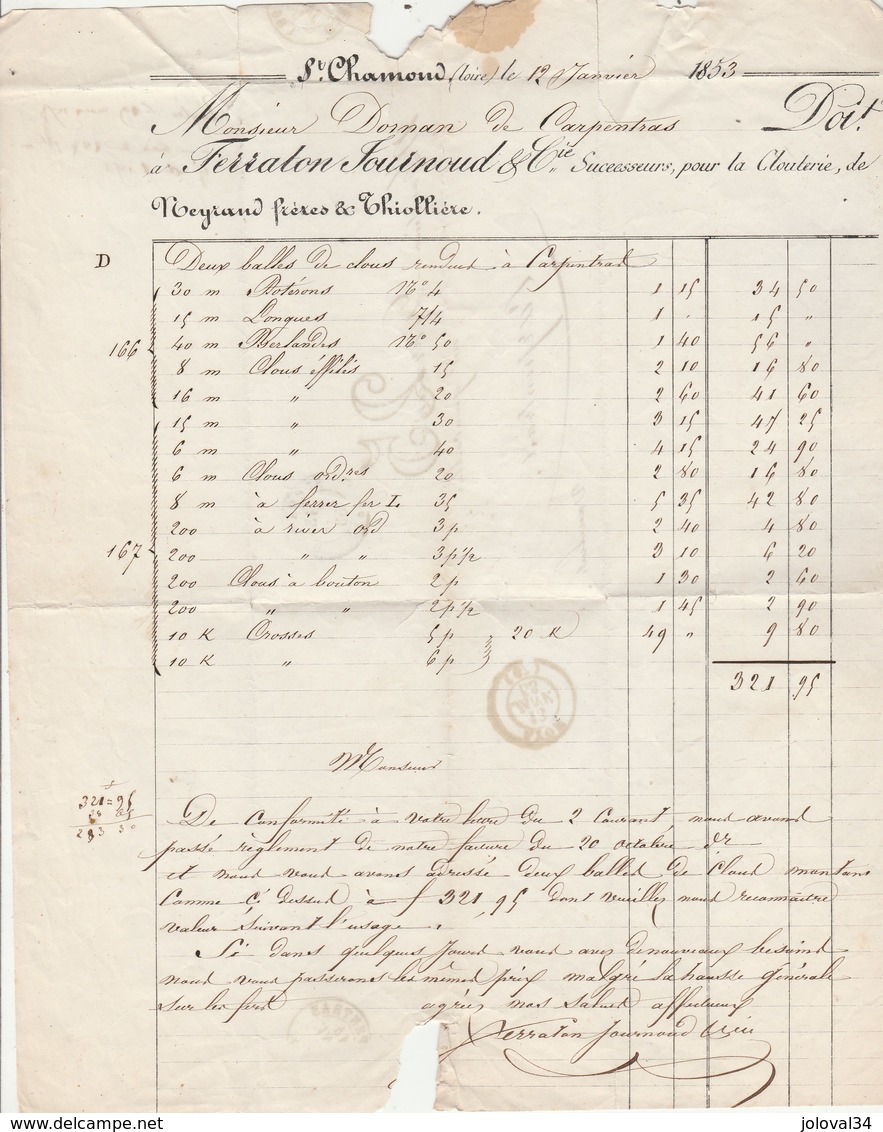 St Chamond (Loire) le 12 Janvier 1853
Monsieur Dornan de Carpentras Doit
à Ferraton Journoud & Cie Successeurs, pour la Clouterie, de
Neyrand frères & Thiollière.
D Deux balles de clous rendues à Carpentras
30 m Potérons No 4 1 15 34 50
15 m Longues 7/4 1 . 15 "
166 40 m Berlandes No 50 1 40 56 "
8 m Clous éffilés 15 2 10 16 80
16 m " 20 2 60 41 60
15 m " 30 3 15 47 25
6 m " 40 4 15 24 90
6 m Clous ordres 20 2 80 16 80
8 m à ferrer fer L 35 5 35 42 80
200 à river ord 3 p 2 40 4 80
167 200 " " 3 p 1/2 3 10 6 20
200 Clous à bouton 2 p 1 30 2 60
200 " " 2 p 1/2 1 45 2 90
10 K Crosses 5 p 20 K 49 " 9 80
10 K " 6 p
321 95
Monsieur
321 = 95
28 65
293 30
De Conformité à votre lettre du 2 Courant nous avons
passé règlement de notre facture du 20 octobre dr
et nous vous avons adressé deux balles de clous montant
Comme ci dessus à f 321 95 dont veuillez nous reconnaitre
valeur suivant l'usage.
Si dans quelques Jours vous avez de nouveaux besoins
nous vous passerons les mêmes prix malgré la hausse générale
sur les fers agréez nos saluts affectueux
Ferraton Journoud & Cie
joloval34